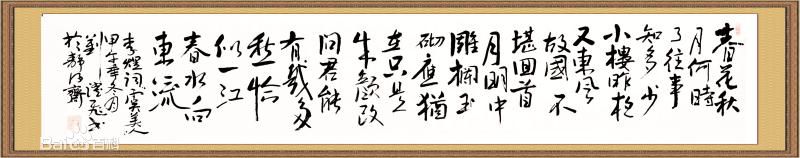 春花秋
月何時
了往事
知多少
小樓昨夜
又東風
故國不
堪回首
月明中
雕欄玉
砌應猶
在只是
朱顏改
問君能
有幾多
愁恰
似一江
春水向
東流
李煜詞虞美人
甲午年冬月
於靜
Baidu百科